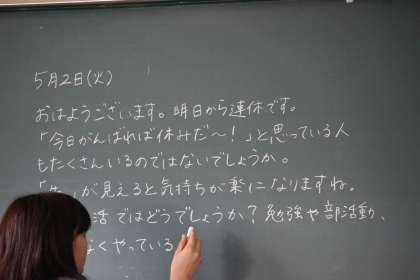 5月2日(火)
おはようございます。明日から連休です。
「今日がんばれば休みだ〜!」と思っている人
もたくさんいるのではないでしょうか。
」が見えると気持ちが楽になりますね。
活ではどうでしょうか?勉強や部活動、
なくやっている